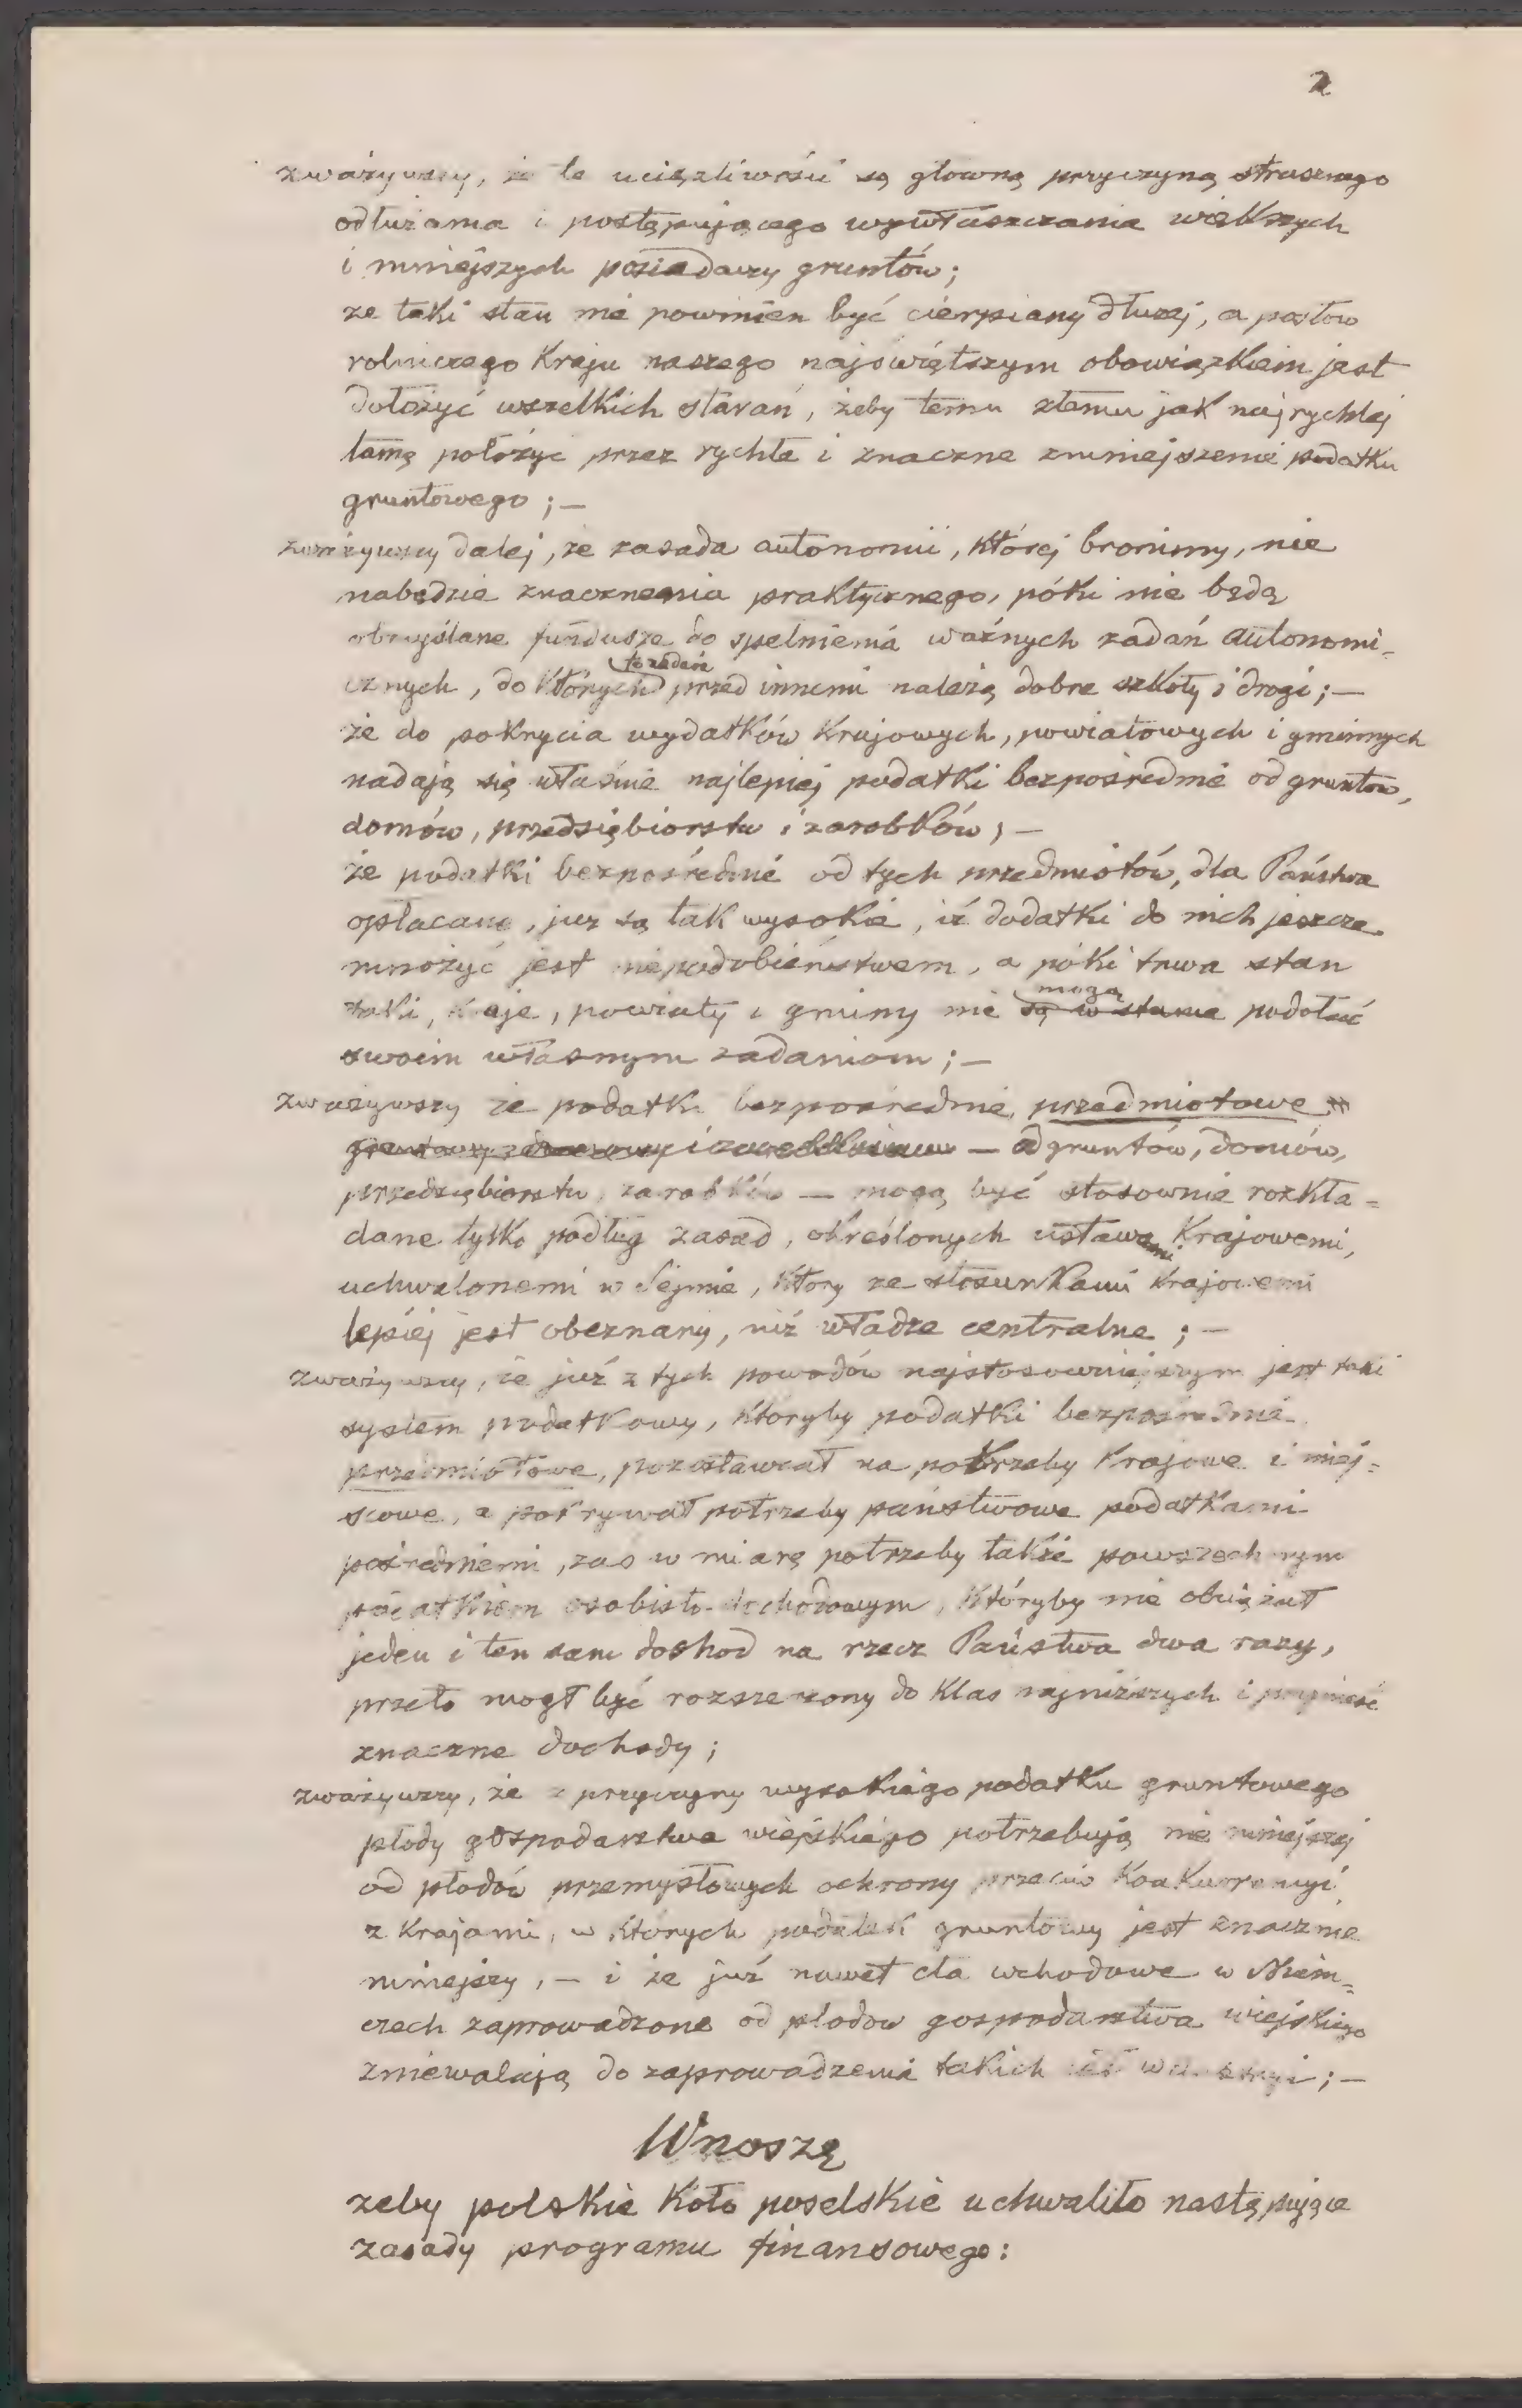 2
zważywszy, że te uciążliwości są głowną przyczyną strasznego
odłużania i postępującego wywłaszczania większych
i mniejszych posiadaczy gruntów;
że taki stan nie powinien być cierpiany dłużej, a posłów
rolniczego Kraju naszego najświętszym obowiązkiem jest
dołożyć wszelkich starań, żeby temu złemu jak najrychlej
tamę położyć przez rychłe i znaczne zmniejszenie podatku
gruntowego; —
zważywszy dalej, że zasada autonomii, której bronimy, nie
nabędzie znaczenia praktycznego, póki nie będą
obmyślane fundusze do spełnienia ważnych zadań autonomi-
to zadań
cznych, do których przed innemi należą dobre szkoły i drogi; —
że do pokrycia wydatków Krajowych, powiatowych i gminnych
nadają się właśnie najlepiej podatki bezpośrednie od gruntów,
domów, przedsiębiorstw i zarobków, —
że podatki bezpośrednie od tych przedmiotów, dla Państwa
opłacane, już są tak wysokie, iż dodatki do nich jeszcze
mnożyć jest niepodobieństwem, a póki trwa stan
mogą
taki, Kraje, powiaty i gminy nie są w stanie podołać
swoim własnym zadaniom; —
zważywszy że podatki bezpośrednie, przedmiotowe
— od gruntów, domów,
przedsiębiorstw, zarobków — mogą być stosownie rozkła=
dane tylko podług zasad, określonych ustawami Krajowemi,
uchwalonemi w Sejmie, który ze stosunkami Krajowemi
lepiej jest obeznany, niż władze centralne; —
zważywszy, że już z tych powodów najstosowniejszym jest taki
system podatkowy, któryby podatki bezpośrednie
przedmiotowe, pozostawiał na potrzeby Krajowe i miej=
scowe, a pokrywał potrzeby państwowe podatkami
pośredniemi, zaś w miarę potrzeby także powszechnym
podatkiem osobisto-dochodowym, któryby nie obciążał
jeden i ten sam dochod na rzecz Państwa dwa razy,
przeto mogł być rozszerzony do Klas najniższych i przynieść
znaczne dochody;
zważywszy, że z przyczyny wysokiego podatku gruntowego
płody gospodarstwa wiejskiego potrzebują nie mniejszej
od płodów przemysłowych ochrony przeciw Konkurrencyi
z Krajami, w których podatek gruntowy jest znacznie
mniejszy, — i że już nawet cła wchodowe w Niem=
czech zaprowadzone od płodow gospodarstwa wiejskiego
zniewalają do zaprowadzenia takich ceł w; —
Wnoszę
żeby polskie Koło poselskie uchwaliło następujące
zasady programu finansowego: